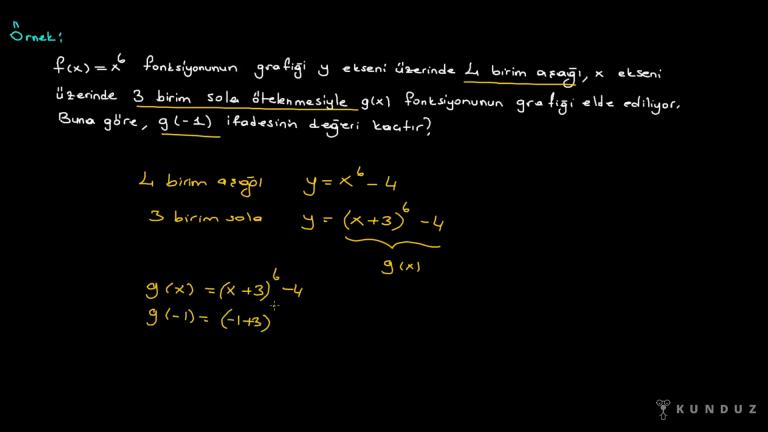 Örnek:
f(x) = x⁶ fonksiyonunun grafiği y ekseni üzerinde 4 birim aşağı, x ekseni
üzerinde 3 birim sola ötelenmesiyle g(x) fonksiyonunun grafiği elde ediliyor.
Buna göre, g(-1) ifadesinin değeri kaçtır?
4 birim aşağı y = x⁶ - 4
3 birim sola y = (x+3)⁶ - 4
g(x)
g(x) = (x+3)⁶ - 4
g(-1) = (-1+3)
KUNDUZ